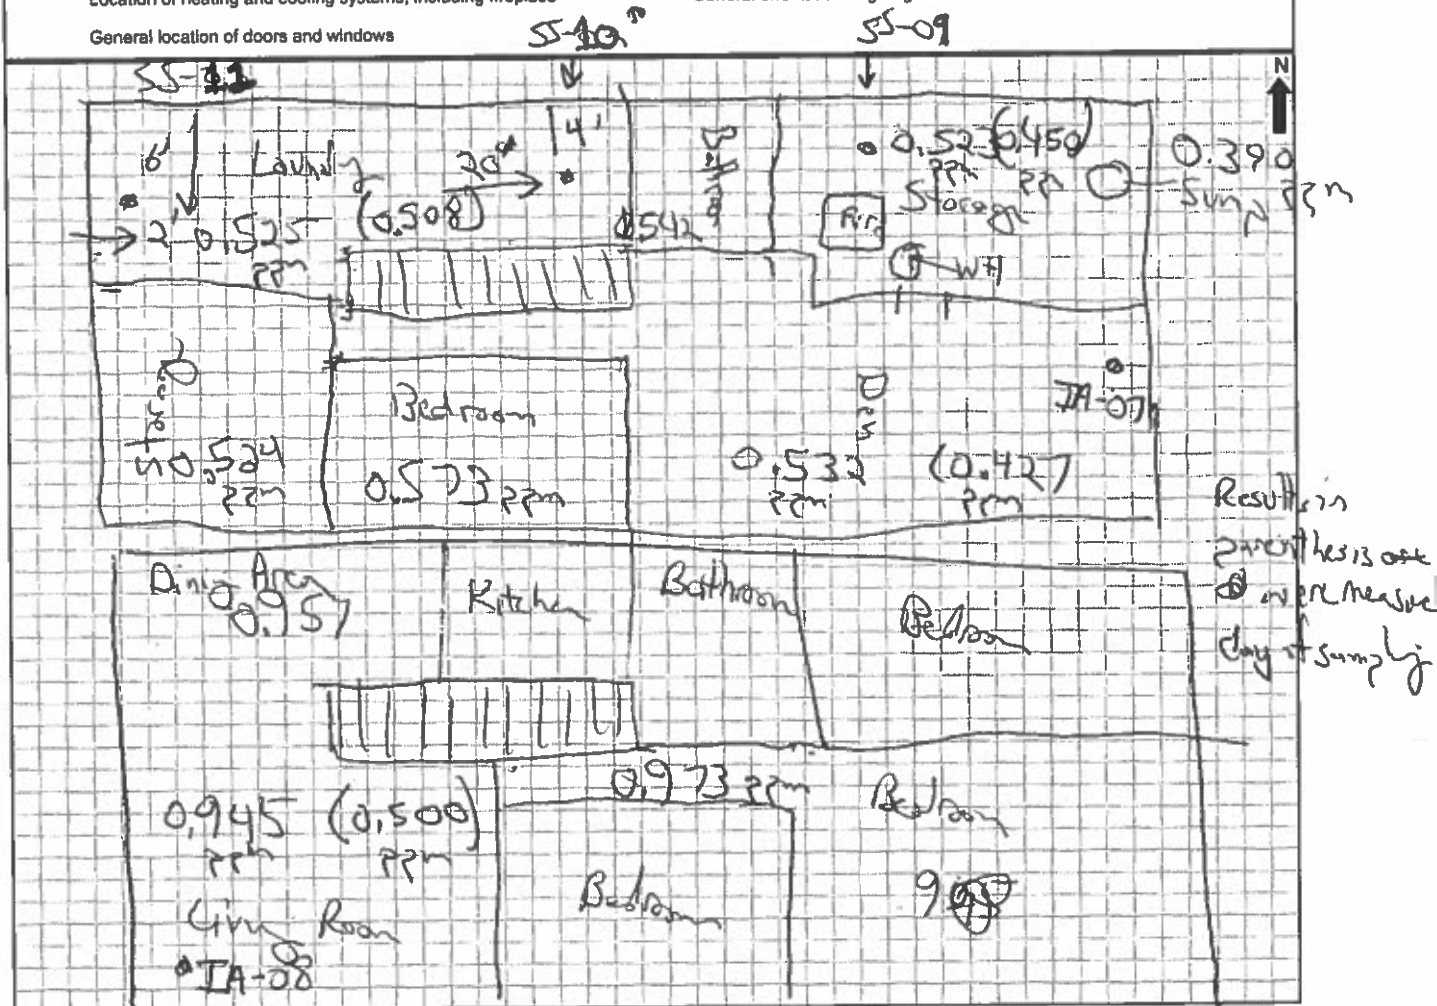 General location of doors and windows
SS-10
SS-09
SS-11
N
6'
Laundry
20"
14'
Bathroom
0.523 (0.450)
ppm ppm
0.390
ppm
Sump
Storage
2' 0.525
ppm
(0.508)
0.542
WH
Storage
Bedroom
Den
IA-07
0.524
ppm
0.573 ppm
0.532
ppm
(0.427
ppm
Results in
parenthesis are
were measured
day of sampling
Dining Area
0.957
Kitchen
Bathroom
Bedroom
0.973 ppm
0.945 (0.500)
ppm ppm
Bedroom
Bedroom
Living Room
IA-08